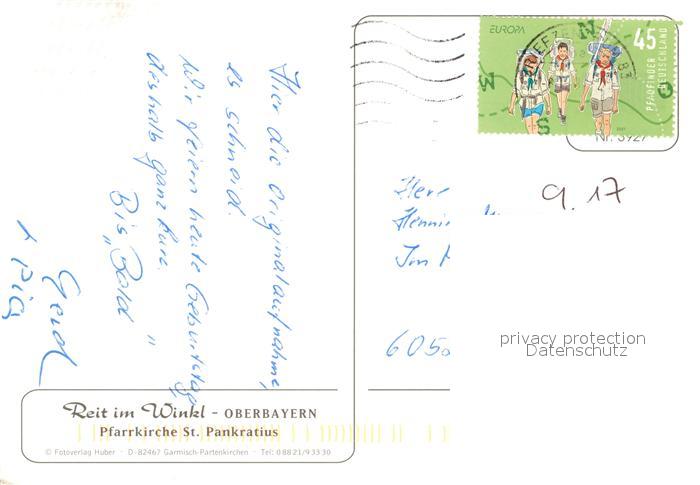 Hier die Originalaufnahme,
es schneid.
Wir feiern heute Geburtstag,
deshalb ganz kurz.
Bis "Bald"
Gerd
+
EUROPA
45
PFADFINDER
DEUTSCHLAND
N
W
O
S
Nr. 3927
9.17
Herr
Henni
Im
6050
privacy protection
Datenschutz
Reit im Winkl - OBERBAYERN
Pfarrkirche St. Pankratius
© Fotoverlag Huber · D-82467 Garmisch-Partenkirchen · Tel: 08821/93330